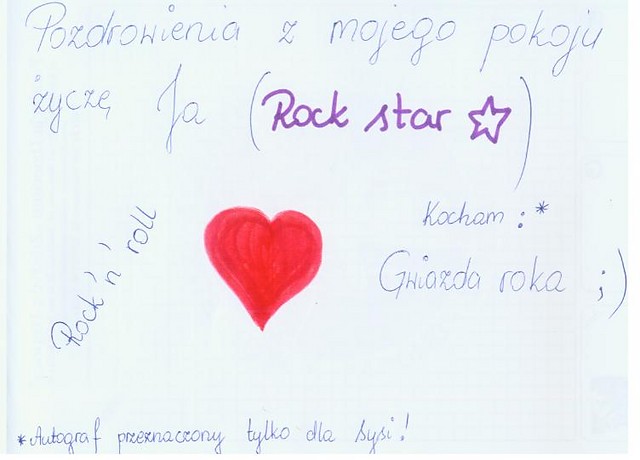 Pozdrowienia z mojego pokoju
życzę Ja (Rock star ☆)
Kocham :*
Gwiazda roka ;)
Rock 'n' roll
*Autograf przeznaczony tylko dla Sysi!